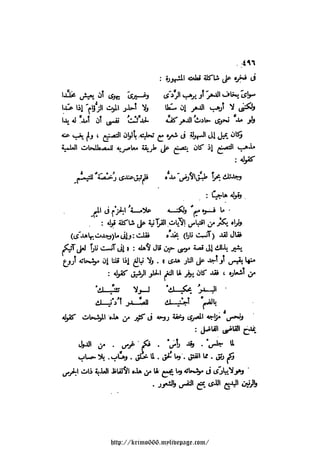 ٤٩٦
فى فخره على شاكلة قطعته المشهورة :
سواىَ يخاف الدهرَ أو يرهب الرَّدى وغيــرىَ يهوى أن يعيش مخلَّدا
ولكننى لا أرهب الدهر إن سَطا ولا أحذر الموت الزُّؤام إذا عدَا
ولو مدَّ نحوى حادثُ الدهر كفَّه لحدَّثْتُ نفسى أن أمدَّ له يدا
وكان يميل إلى السهولة فى شعره مع تحليته بألوان التصنيع ، ولم يغب عنه
مذهب التصنع إذ كان يتصنع على طريقة معاصريه للمصطلحات العلمية
كقوله :
وجدتك بحرًا طبَّق الأرضَ مدُّه
وقوله هاجيًا :
ما فـــوه ميمٌ ولكنــــه علامــــةُ الجزْم فى الميم
ونراه يكثر من اقتباس الآيات القرآنية على شاكلة قوله :
فقال لقد (آنستُ نارًا) بخدِّه فقلت : وإنى ما (وجدت بها هدى)
يشير بذلك إلى قصة موسى حين قال لأهله : « إنى آنست نارًا لعلى آتيكم
منها بقبس أو أجد على النار هدى » . ولا نبالغ إذا قلنا إن موشحاته أروع
من أشعاره ، فقد كان يوفر لها النغم الحلو الرشيق كقوله :
البــــدرُ يحكيــــكَ لــــولا تثنِّيــــك
بالفمِ أجنيــــك للصــدر أُدنيــك
ونحسُّ مزاجه المصرى وخفة روحه فى كثير من هذه الموشحات كقوله
يمتدح القاضى الفاضل :
لما جلس . وقد رأس . فكم غرس . من الدول
وكم رتق . مما انفتق . وما نُخلق . لما خلق . وهاب . بلا حساب
وهو لا يبارَى فى موشحاته وما يجمع لها من هذه الألفاظ العذبة ذات الجرس
والرنين البديع الذى يمتع النفس والشعور .
http://krimo666.mylivepage.com/